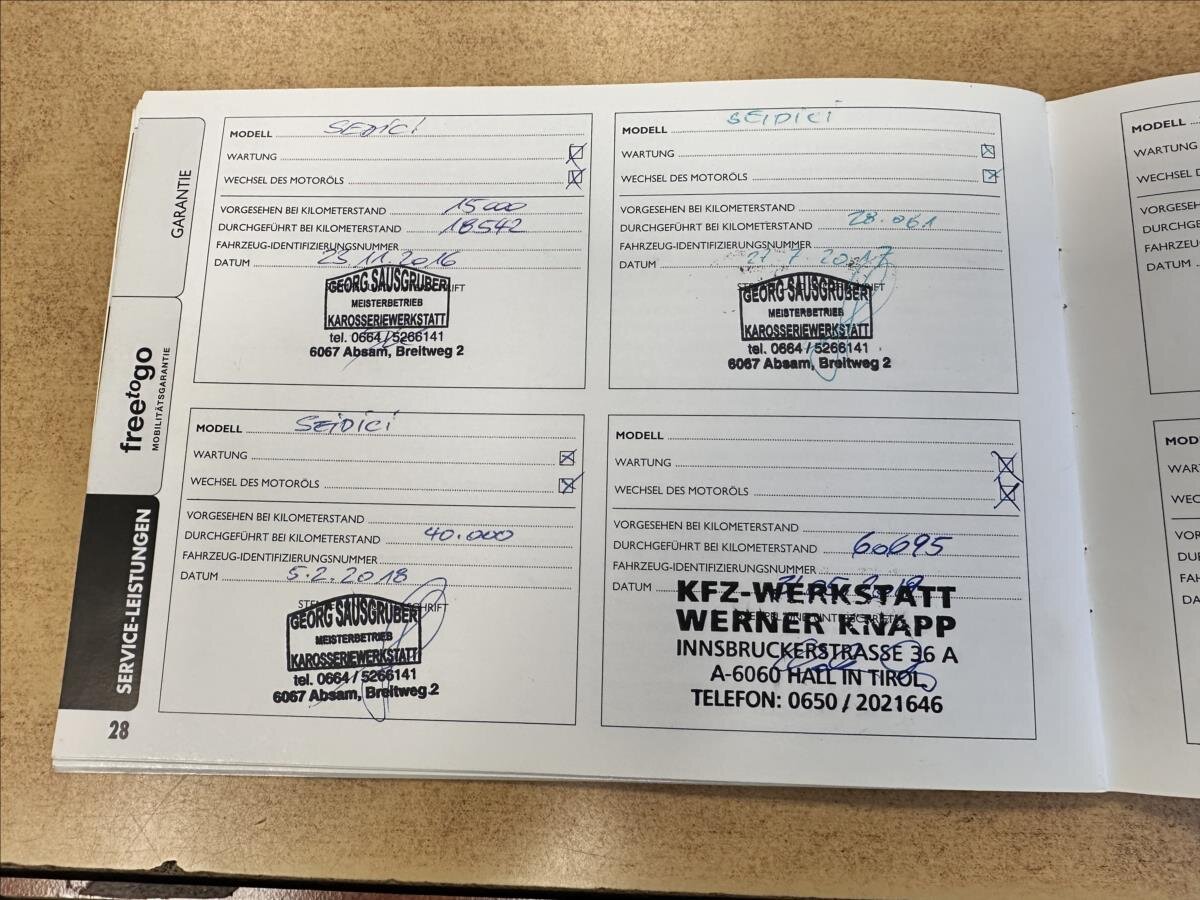 GARANTIE
freetogo
MOBILITÄTSGARANTIE
SERVICE-LEISTUNGEN
28
MODELL SEDICI
WARTUNG
WECHSEL DES MOTORÖLS
VORGESEHEN BEI KILOMETERSTAND 15000
DURCHGEFÜHRT BEI KILOMETERSTAND 18542
FAHRZEUG-IDENTIFIZIERUNGSNUMMER
DATUM 23.11.2016
GEORG SAUSGRUBER
MEISTERBETRIEB
KAROSSERIEWERKSTATT
tel. 0664/5266141
6067 Absam, Breitweg 2
MODELL SEIDICI
WARTUNG
WECHSEL DES MOTORÖLS
VORGESEHEN BEI KILOMETERSTAND
DURCHGEFÜHRT BEI KILOMETERSTAND 28.061
FAHRZEUG-IDENTIFIZIERUNGSNUMMER
DATUM 27.7.2017
GEORG SAUSGRUBER
MEISTERBETRIEB
KAROSSERIEWERKSTATT
tel. 0664/5266141
6067 Absam, Breitweg 2
MODELL SEIDICI
WARTUNG
WECHSEL DES MOTORÖLS
VORGESEHEN BEI KILOMETERSTAND
DURCHGEFÜHRT BEI KILOMETERSTAND 40.000
FAHRZEUG-IDENTIFIZIERUNGSNUMMER
DATUM 5.2.2018
GEORG SAUSGRUBER
MEISTERBETRIEB
KAROSSERIEWERKSTATT
tel. 0664/5266141
6067 Absam, Breitweg.2
MODELL
WARTUNG
WECHSEL DES MOTORÖLS
VORGESEHEN BEI KILOMETERSTAND
DURCHGEFÜHRT BEI KILOMETERSTAND 60695
FAHRZEUG-IDENTIFIZIERUNGSNUMMER
DATUM
KFZ-WERKSTATT
WERNER KNAPP
INNSBRUCKERSTRASSE 36 A
A-6060 HALL IN TIROL
TELEFON: 0650 / 2021646
MODELL
WARTUNG
WECHSEL D
VORGESEH
DURCHGEF
FAHRZEU
DATUM
MOD
WAR
WEC
VOR
DU
FA
DA